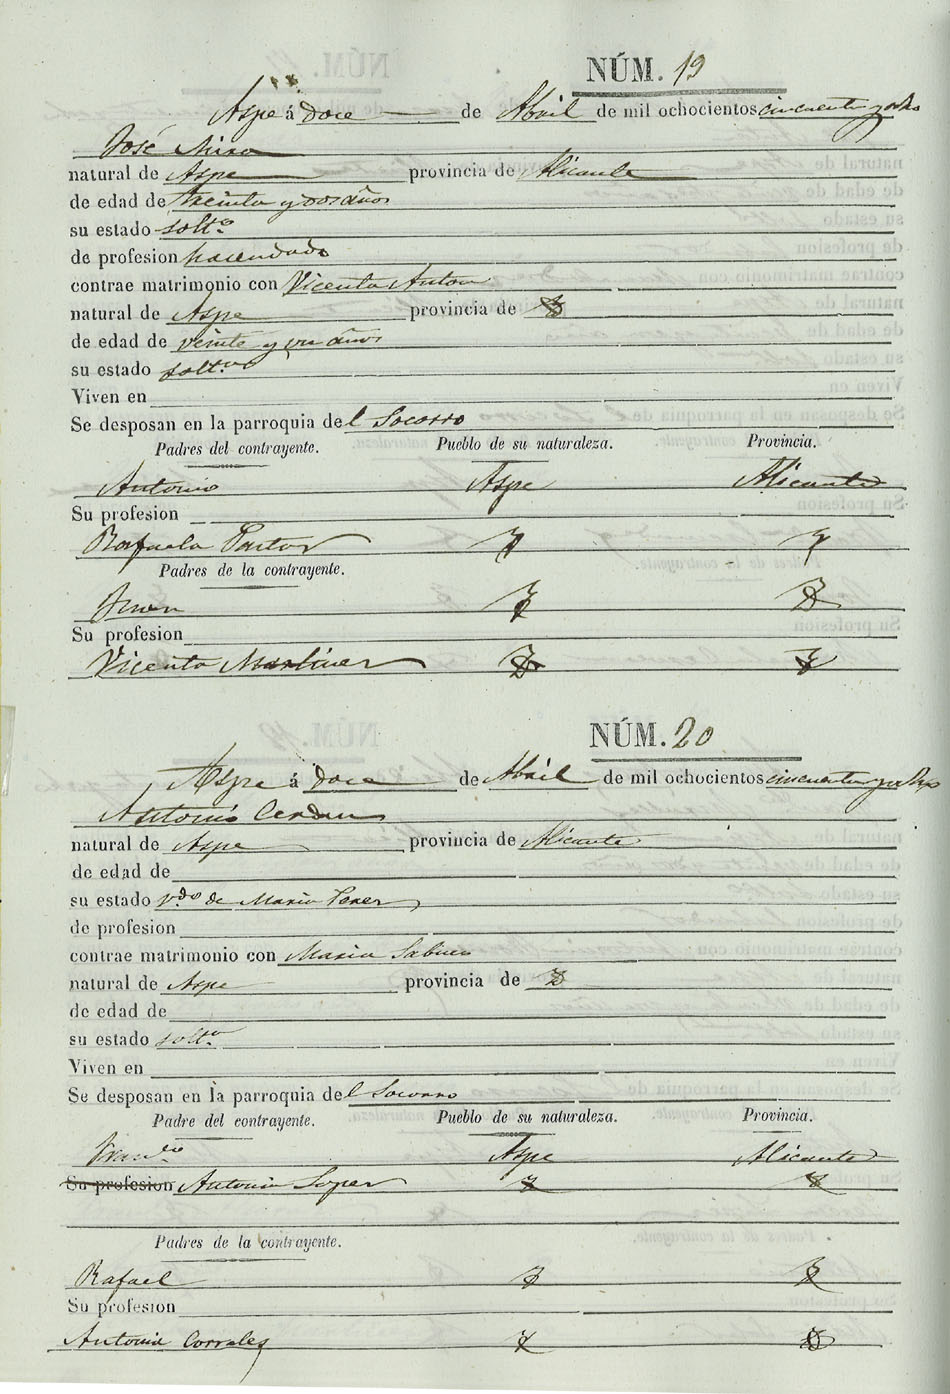 NÚM. 19
Aspe á doce de Abril de mil ochocientos cincuenta y ocho
José Mira
natural de Aspe provincia de Alicante
de edad de treinta y dos años
su estado solt.o
de profesion hacendado
contrae matrimonio con Vicenta Anton
natural de Aspe provincia de
de edad de veinte y un años
su estado solt.a
Viven en
Se desposan en la parroquia del Socorro
Padres del contrayente. Pueblo de su naturaleza. Provincia.
Antonio Aspe Alicante
Su profesion
Rafaela Pastor
Padres de la contrayente.
Juan
Su profesion
Vicenta Martinez
NÚM. 20
Aspe á doce de Abril de mil ochocientos cincuenta y ocho
Antonio Cerdan
natural de Aspe provincia de Alicante
de edad de
su estado v.do de Maria Perez
de profesion
contrae matrimonio con Maria Sabuco
natural de Aspe provincia de
de edad de
su estado solt.a
Viven en
Se desposan en la parroquia del Socorro
Padre del contrayente. Pueblo de su naturaleza. Provincia.
Fran.co Aspe Alicante
Su profesion Antonia Soper
Padres de la contrayente.
Rafael
Su profesion
Antonia Corrales